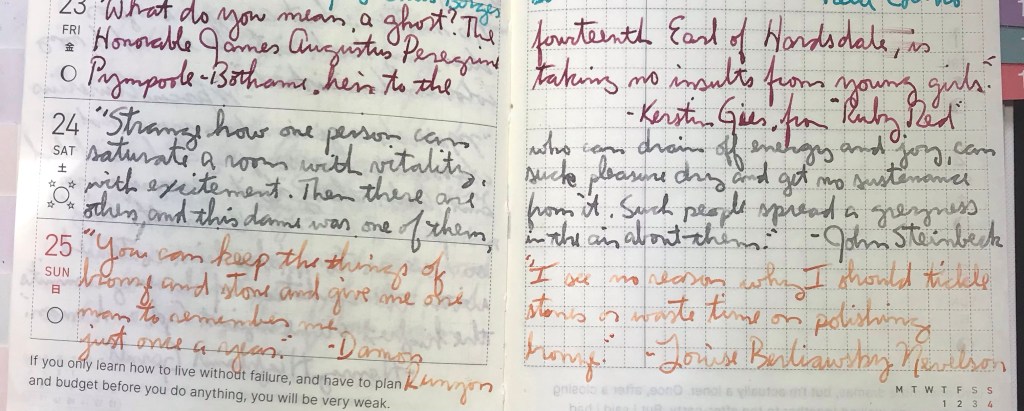 23
FRI
金
"What do you mean, a ghost? The
Honorable James Augustus Peregrine
Pympoole-Bothame, heir to the
24
SAT
土
"Strange how one person can
saturate a room with vitality,
with excitement. Then there are
others, and this dame was one of them,
25
SUN
日
"You can keep the things of
bronze and stone and give me one
man to remember me
just once a year." -Damon
Runyon
If you only learn how to live without failure, and have to plan
and budget before you do anything, you will be very weak.
fourteenth Earl of Hardsdale, is
taking no insults from young girls."
-Kerstin Gier, from "Ruby Red"
who can drain off energy and joy, can
suck pleasure dry and get no sustenance
from it. Such people spread a greyness
in the air about them." -John Steinbeck
"I see no reason why I should tickle
stones or waste time on polishing
bronze." -Louise Berliawsky Nevelson
M T W T F S S
1 2 3 4